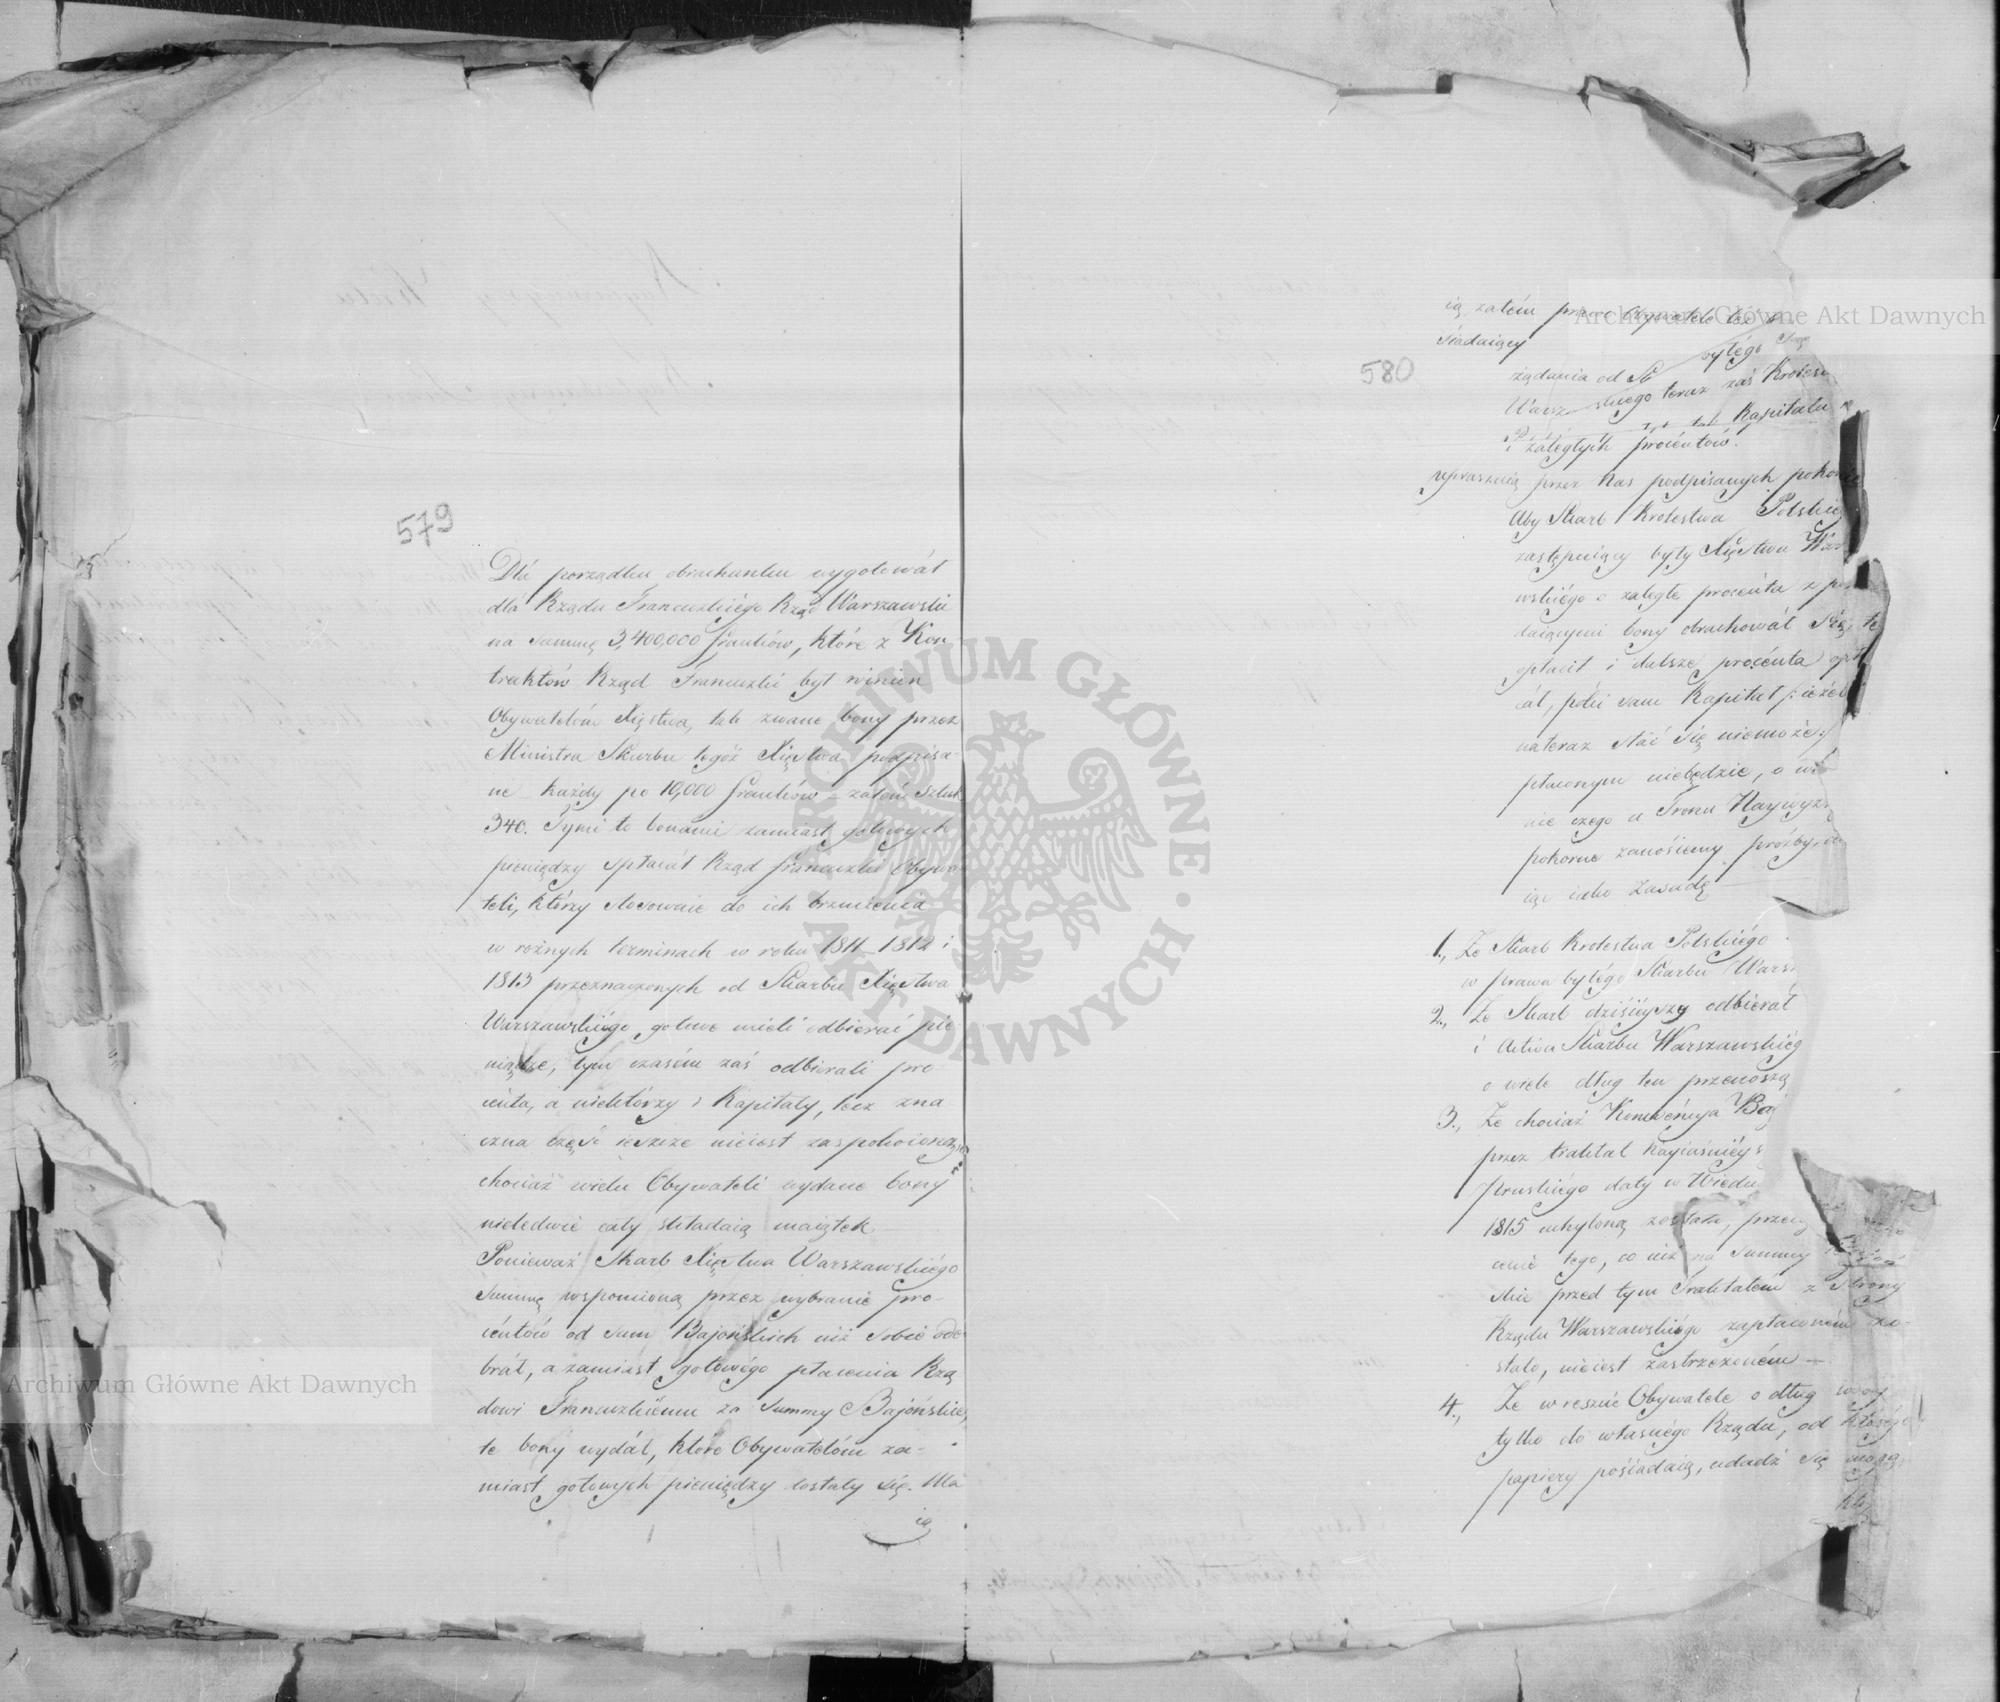 579
Dla porządku obrachunku wygotował
dla Rządu Francuzkiégo Rząd Warszawski
na Summę 3,400,000 franków, które z Kon-
traktów Rząd Francuzki był winien
Obywatelóm Xięstwa, tak zwane bony przez
Ministra Skarbu tegóż Xięstwa podpisa-
ne każdy po 10,000 franków – zatém sztuk
340. Tymi to bonami zamiast gotowych
pieniędzy spłacał Rząd francuzki Obywa-
teli, którzy stosownie do ich brzmienia
w rożnych terminach w roku 1811 – 1812 i
1813 przeznaczonych od Skarbu Xięstwa
Warszawskiégo gotowe mieli odbierać pie-
niądze, tym czasém zaś odbierali pro-
centa, a niektórzy i Kapitały, lecz zna
czna część ieszcze nieiest zaspokoioną,
chociaż wielu Obywateli wydane bony
nieledwie cały składaią maiątek –
Ponieważ Skarb Xięstwa Warszawskiégo
Summę wspomnioną przez wybranie pro-
centów od sum Bajońskich iuż sobie ode-
brał, a zamiast gotowégo płacenia Rzą
dowi Francuzkiému za Summy Bajońskie,
te bony wydał, które Obywatelóm za-
miast gotowych pieniędzy dostały się. Ma
ią
580
ią zatém prawo Obywatele też
siadaiący
żądania od byłégo
Warsz skiego teraz zaś Krolest
Kapitału
i zaległych procentów.
upraszaią przez Nas podpisanych pokornie
Aby Skarb Krolestwa Polskié
zastępuiący były Xięstwa War
wskiégo zaległe procenta z po
daiącymi bony obrachował
opłacił i dalsze procenta opł
cał, póki sam Kapitał /: ieżeli
nateraz stać się niemoże :/
płaconym niebędzie, o
nie czego u Tronu Naywyż
pokorne zanosiemy prożby,
iąc iako Zasadę –
1., Ze Skarb Krolestwa Polskiégo
w prawa byłégo Skarbu Warsz
2., Ze Skarb dzisieyszy odbierał
i Activa Skarbu Warszawskiég
o wiele dług ten przenoszą
3., Ze chociaż Konwéncya Baj
przez traktat Nayiaśniéys
Pruskiégo daty w Wiedn
1815 uchyloną została, przeci
cenie tego, co iuż na Summy
skie przed tym Traktatém z Strony
Rządu Warszawskiégo zapłaconém zo-
stało, nieiest zastrzeżoném –
4., Ze w reszcie Obywatele o dług
tylko do własnégo Rządu, od którégo
papiery posiadaią, udadź się mogą,
Archiwum Główne Akt Dawnych
Archiwum Główne Akt Dawnych
ARCHIWUM GŁÓWNE · AKT DAWNYCH ·